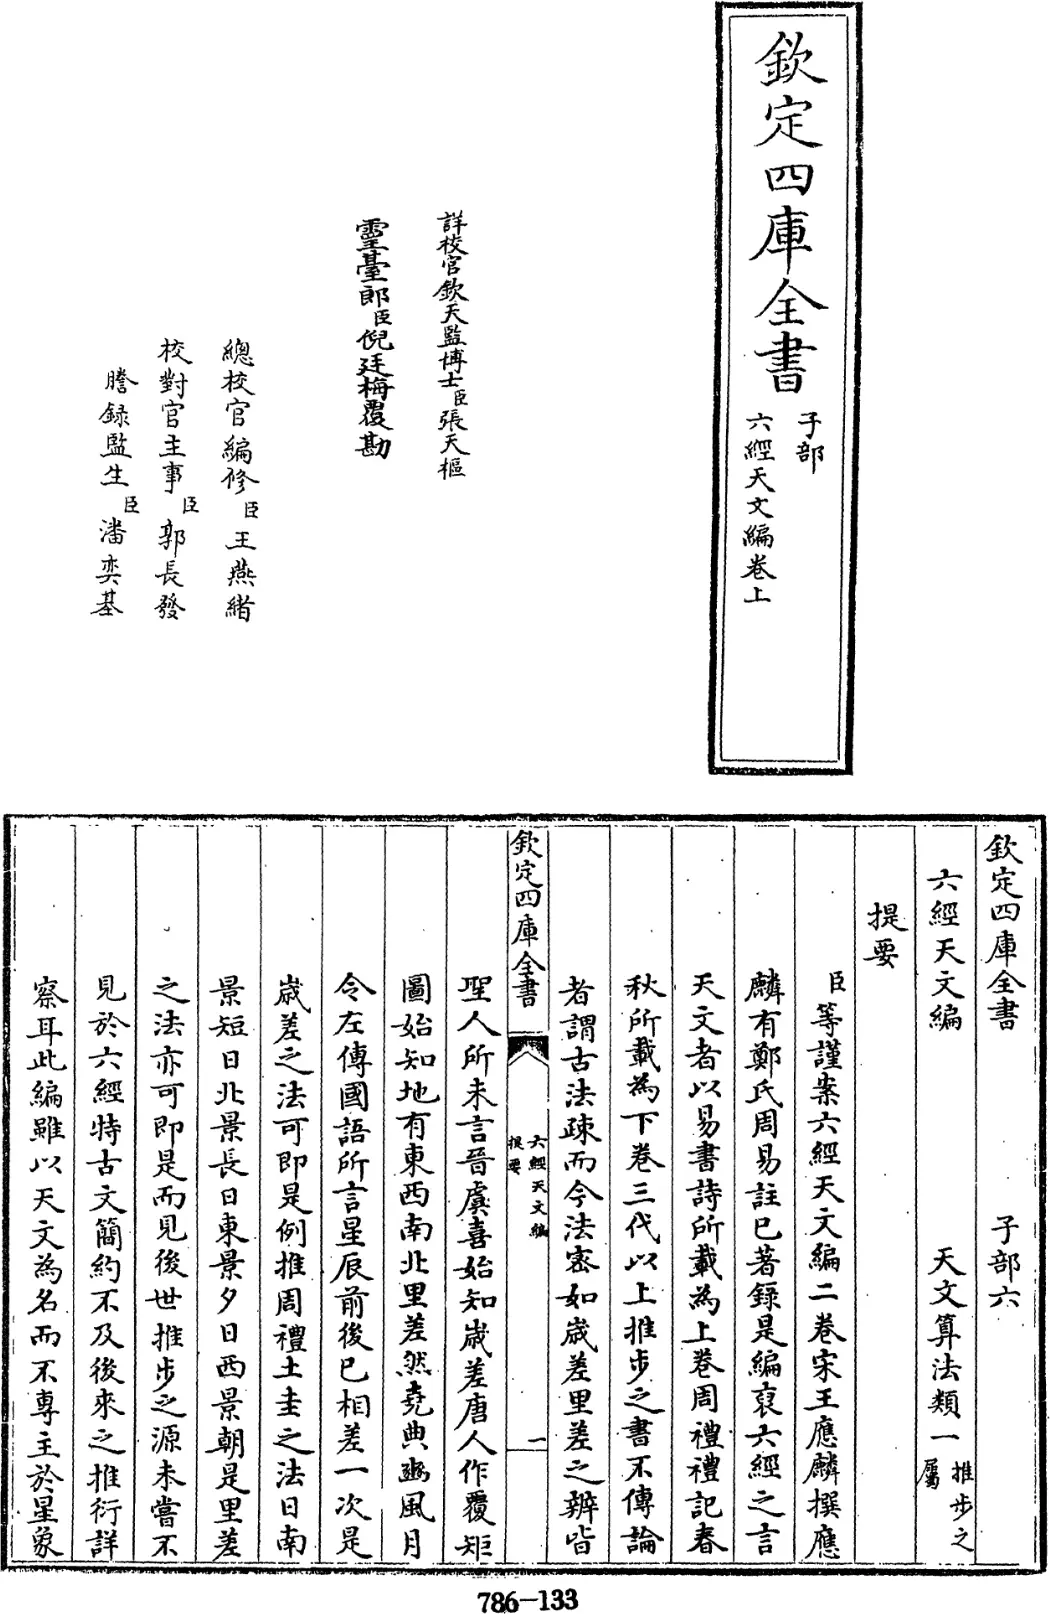 欽定四庫全書
子部
六經天文編卷上
詳校官欽天監博士臣張天樞
靈臺郎臣倪廷梅覆勘
總校官編修臣王燕緒
校對官主事臣郭長發
謄録監生臣潘奕基
欽定四庫全書　子部六
六經天文編　天文算法類一推步之屬
提要
臣等謹案六經天文編二卷宋王應麟撰應
麟有鄭氏周易註已著録是編裒六經之言
天文者以易書詩所載為上卷周禮禮記春
秋所載為下卷三代以上推步之書不傳論
者謂古法疎而今法宻如歲差里差之辨皆
欽定四庫全書
六經天文編
提要
一
聖人所未言晉虞喜始知歲差唐人作覆矩
圖始知地有東西南北里差然堯典豳風月
令左傳國語所言星辰前後已相差一次是
歲差之法可即是例推周禮土圭之法日南
景短日北景長日東景夕日西景朝是里差
之法亦可即是而見後世推步之源未嘗不
見於六經特古文簡約不及後來之推衍詳
察耳此編雖以天文為名而不專主於星象
786-133